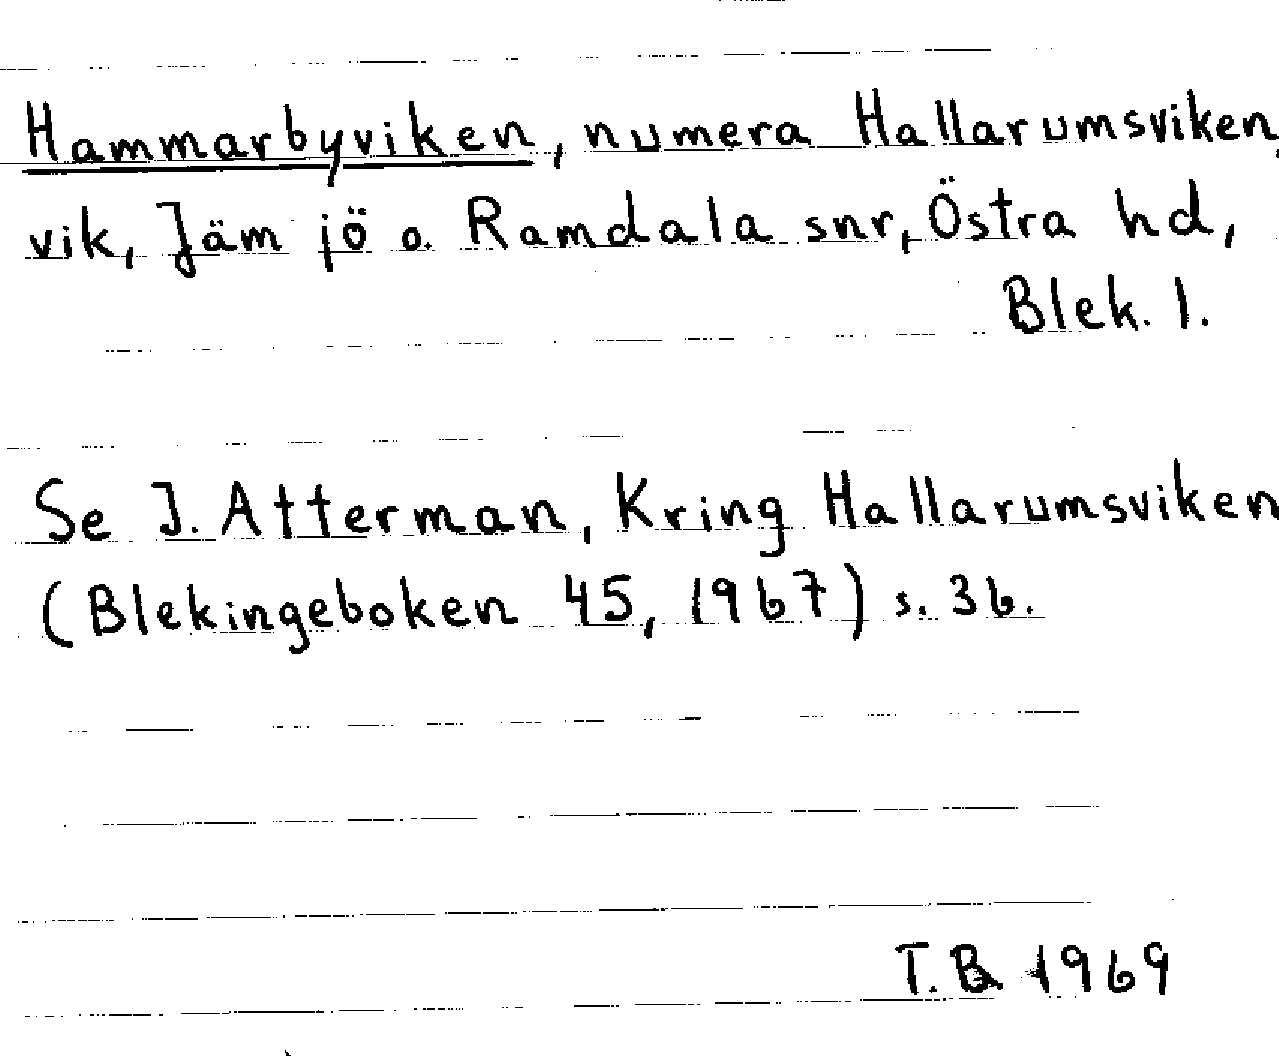 Hammarbyviken, numera Hallarumsviken,
vik, Jämjö o. Ramdala snr, Östra hd,
Blek. l.
Se J. Atterman, Kring Hallarumsviken
(Blekingeboken 45, 1967) s. 36.
T.B. 1969